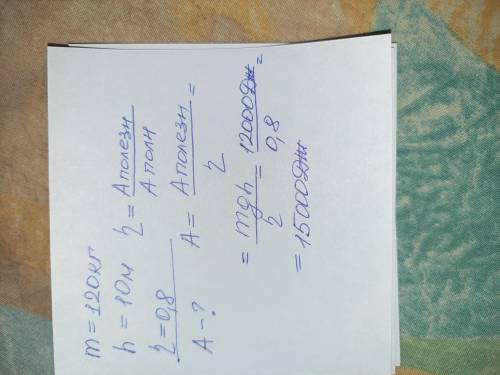 m = 120кг
h = 10м
η = 0,8
A - ?
η = Aполезн / Aполн
A = Aполезн / η =
= mgh / η = 12000Дж / 0,8 =
= 15000Дж